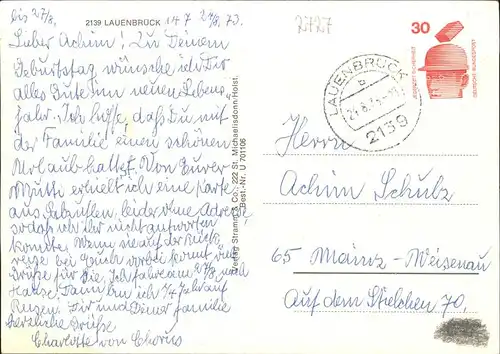 bis 27/8.
2139 LAUENBRÜCK
24/8. 73.
2727
Lieber Achim! Zu Deinem
Geburtstag wünsche ich Dir
alles Gute im neuen Lebens-
jahr. Ich hoffe, daß Du mit
der Familie einen schönen
Urlaub hattest. Von Eurer
Mutti erhielt ich eine Karte
aus, leider ohne Adresse,
sodaß ich ihr nicht antworten
konnte. Wenn sie auf der Rück-
reise bei Euch vorbei kommt
Grüße für sie. Ich fahre am 27/8 nach
Hause. Dann bin ich 1/4 Jahr auf
Reisen. Dir und Deiner Familie
herzliche Grüße
Charlotte von
Verlag Stramm & Co., 222 St. Michaelisdonn/Holst.
Best.-Nr. U 701106
30
DEUTSCHE BUNDESPOST
LAUENBRÜCK
b
2139
Herrn
Achim Schulz
65 Mainz-Weisenau
Auf dem Stielchen 70.